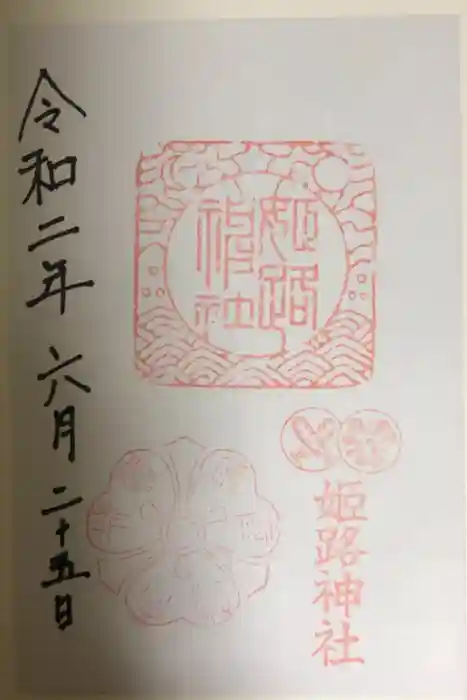 姫路神社
姫路神社
令和二年 六月 二十五日